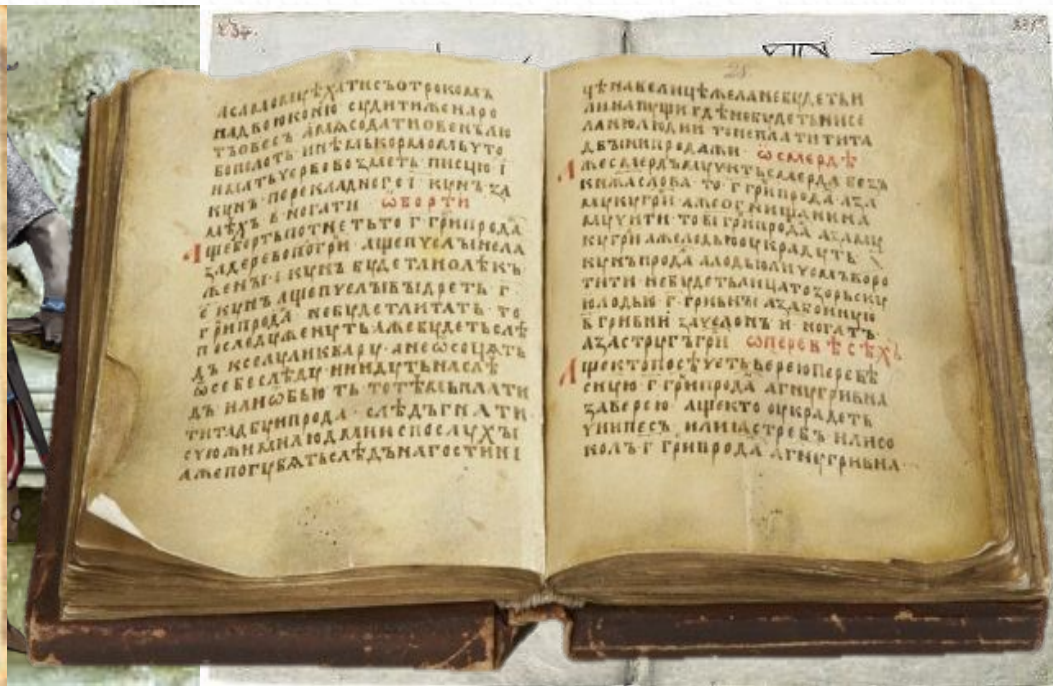 234.
асамомꙋѣхатисъотрокомъ
надвоюконю сꙋдитиженаро
тъовесъ амѧсодатиовенълю
бополоть инѣмькормомьбꙋто
кꙋнъ перекладнегоі кꙋнъ за
мѣхъ в ногати ѡборти
Ащебортьпотнетьто г грипрода
задеревополгри ащепчелывыдера
жены і кꙋнъ бꙋдетлиолѣкъ
е кꙋнъ ащепчелывыдреть г
грипрода небꙋдетлитать то
последꙋженꙋть ажебꙋдетьслѣ
дъ кселꙋиликтоварꙋ анеѿсочѧть
ѿсебеследꙋ нинидꙋтьнаслѣ
дъ илиѿбьють тотѣмьплати
титадбꙋипрода слѣдъгнати
сꙋюжимилюдмииспослꙋхы
ажепогꙋбѧтьслѣдънагостинꙋ
28
цѣнавелицѣжеланебꙋдетьи
линапꙋщигдѣнебꙋдетьнисе
ланилюдии тонеплатитита
двыинпродажи ѡсмердѣ
Ажесмердъмꙋчитьсмердабезъ
кнѧжаслова то г грипрода аза
мꙋкꙋгри ажеогнищанина
мꙋчити тов і грипрода азамꙋ
кꙋгри ажелодьюꙋкрадꙋть
кꙋнъпрода алодьюлицомьворо
тити небꙋдетьлицатозаморьскꙋ
юлодью г гривны азабоиную
в гривни зачелонъ и ногатъ
азастрꙋгъгри ѡперевѣсѣхъ
Ащектопосѣчетьверюперевѣ
снꙋю г грипрода агнꙋгривна
заверею ащекто оꙋкрадеть
ꙋчипесъ илиꙗстребъ илисо
колъ г грипрода агнꙋгривна
235